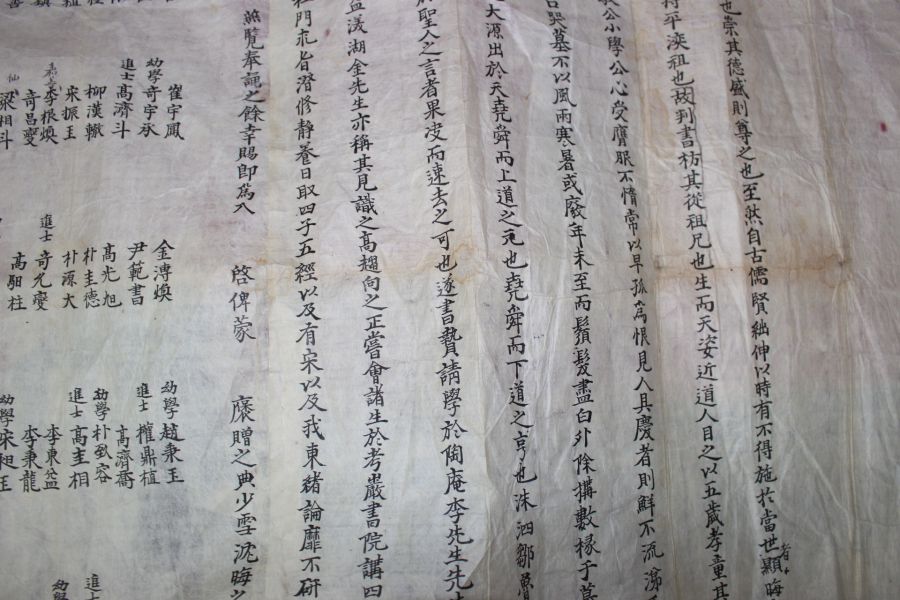 也崇其德盛則尊之也至然自古儒賢絀伸以時有不得施於當世顯晦
者
持平渙祖也故判書枋其從祖兄也生而天姿近道人目之以五歲孝童其
公小學公心受膺服不惰常以早孤爲恨見人具慶者則鮮不流涕
哭墓不以風雨寒暑或廢年未至而鬚髮盡白外除搆數椽于墓
大源出於天堯舜而上道之元也堯舜而下道之亨也洙泗鄒魯
聖人之言者果皮而速去之可也遂書贄請學於陶庵李先生先
渼湖金先生亦稱其見識之高趨向之正嘗會諸生於考巖書院講四
杜門求旨潛修靜養日取四子五經以及有宋以及我東緖論靡不硏
照覽奉詭之餘幸賜卽爲入 啓俾蒙 褒贈之典少雪沈晦
崔宇鳳
幼學奇宇承
進士高濟斗
柳漢轍
宋振玉
李根煥
奇昌燮
梁相斗
金溥煥
尹範書
高光旭
朴圭德
朴源大
進士奇允燮
高駬柱
幼學趙秉玉
進士權鼎植
高濟翕
幼學朴致容
進士高圭相
李東益
李秉龍
幼學宋昶玉
進
幼學